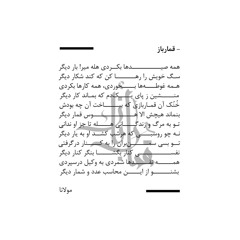 - قمارباز
همه صیدها بکردی هله میرا بار دیگر
سگ خویش را رها کن که کند شکار دیگر
همه غوطه‌ها بخوردی، همه کارها بکردی
منشین ز پای یکدم که بماند کار دیگر
خُنُک آن قماربازی که بباخت آن چه بودش
بنماند هیچش الا هوس قمار دیگر
تو به مرگ و زندگانی هله تا جز او ندانی
نه چو روسپی که هر شب کشد او به یار دیگر
همه نقدها شمردی به وکیل درسپردی
بشنو از این محاسب عدد و شمار دیگر
مولانا